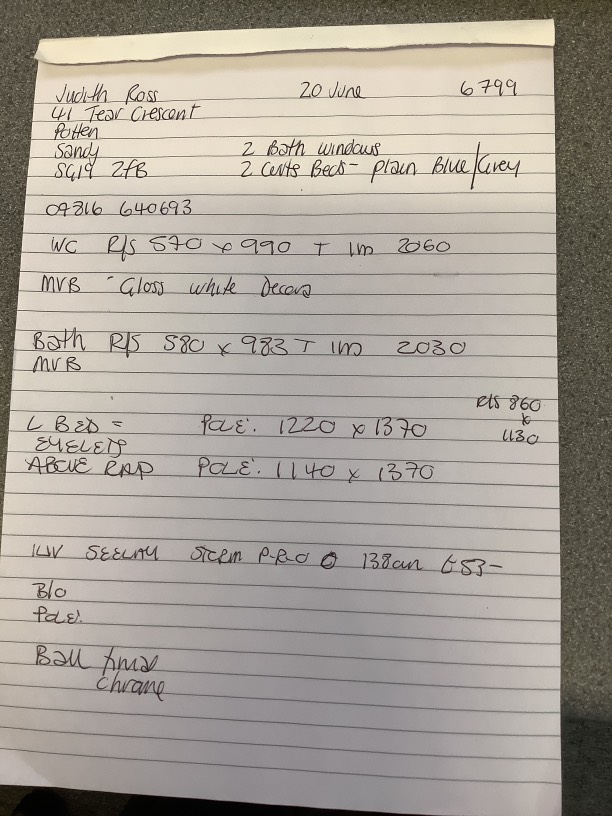 Judith Ross 20 June 6799
41 Tear Crescent
Potten
Sandy 2 Bath windows
SG19 2fB 2 Curts Beds - plain Blue/Grey
07816 640693
WC R/S 570 x 990 T 1m 2060
MVB - Gloss white Decora
Bath R/S 580 x 983 T 1m 2030
MVB
R/S 860
x
1130
L BED = POLE: 1220 x 1370
EYELETS
ABOVE RAD POLE: 1140 x 1370
STORM P-R-O 138cm £53-
B/O
POLE:
Ball
chrome